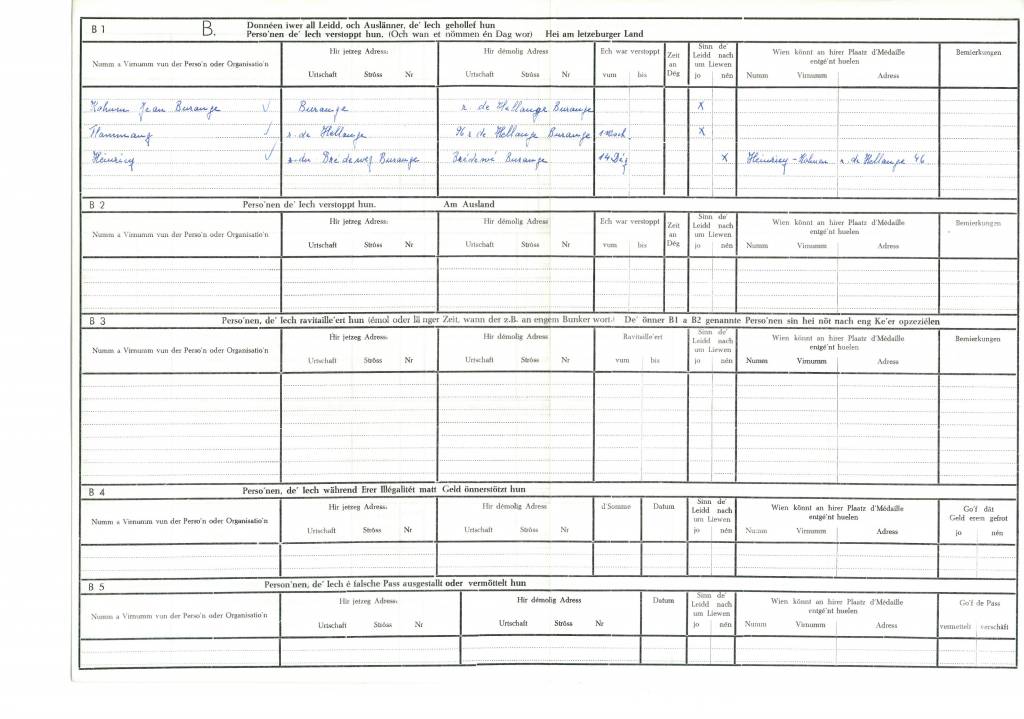 B 1 B. Donnéen iwer all Leidd, och Auslänner, de' Iech gehollef hun
Perso'nen de' Iech verstoppt hun. (Och wan et nömmen én Dag wor) Hei am letzeburger Land
Numm a Virnumm vun der Perso'n oder Organisatio'n Hir jetzeg Adress: Hir démolig Adress Ech war verstoppt Zeit an Dég Sinn de' Leidd nach um Liewen Wien könnt an hirer Plaatz d'Médaille entgé'nt huelen Bemierkungen
Urtschaft Ströss Nr Urtschaft Ströss Nr vum bis jo nén Numm Virnumm Adress
Jean Burange ✓ Burange r. de Hellange Burange x
Flammang ✓ r. de Hellange 46 r de Hellange Burange x
Heinricy ✓ Bredeweg Burange Burange 14 Dég x Heinricy - r. de Hellange 46
B 2 Perso'nen de' Iech verstoppt hun. Am Ausland
Numm a Virnumm vun der Perso'n oder Organisatio'n Hir jetzeg Adress: Hir démolig Adress Ech war verstoppt Zeit an Dég Sinn de' Leidd nach um Liewen Wien könnt an hirer Plaatz d'Médaille entgé'nt huelen Bemierkungen
Urtschaft Ströss Nr Urtschaft Ströss Nr vum bis jo nén Numm Virnumm Adress
B 3 Perso'nen, de' Iech ravitaille'ert hun (émol oder länger Zeit, wann der z.B. an engem Bunker wort.) De' önner B1 a B2 genannte Perso'nen sin hei nöt nach eng Ke'er opzeziélen
Numm a Virnumm vun der Perso'n oder Organisatio'n Hir jetzeg Adress: Hir démolig Adress Ravitaille'ert Sinn de' Leidd nach um Liewen Wien könnt an hirer Plaatz d'Médaille entgé'nt huelen Bemierkungen
Urtschaft Ströss Nr Urtschaft Ströss Nr vum bis jo nén Numm Virnumm Adress
B 4 Perso'nen, de' Iech während Erer Illégalitét matt Geld önnerstötzt hun
Numm a Virnumm vun der Perso'n oder Organisatio'n Hir jetzeg Adress: Hir démolig Adress d'Somme Datum Sinn de' Leidd nach um Liewen Wien könnt an hirer Plaatz d'Médaille entgé'nt huelen Go'f dât Geld erem gefrot
Urtschaft Ströss Nr Urtschaft Ströss Nr jo nén Numm Virnumm Adress jo nén
B 5 Person'nen, de' Iech é falsche Pass ausgestallt oder vermöttelt hun
Numm a Virnumm vun der Perso'n oder Organisatio'n Hir jetzeg Adress: Hir démolig Adress Datum Sinn de' Leidd nach um Liewen Wien könnt an hirer Plaatz d'Médaille entgé'nt huelen Go'f de Pass
Urtschaft Ströss Nr Urtschaft Ströss Nr jo nén Numm Virnumm Adress vermettelt verschâft